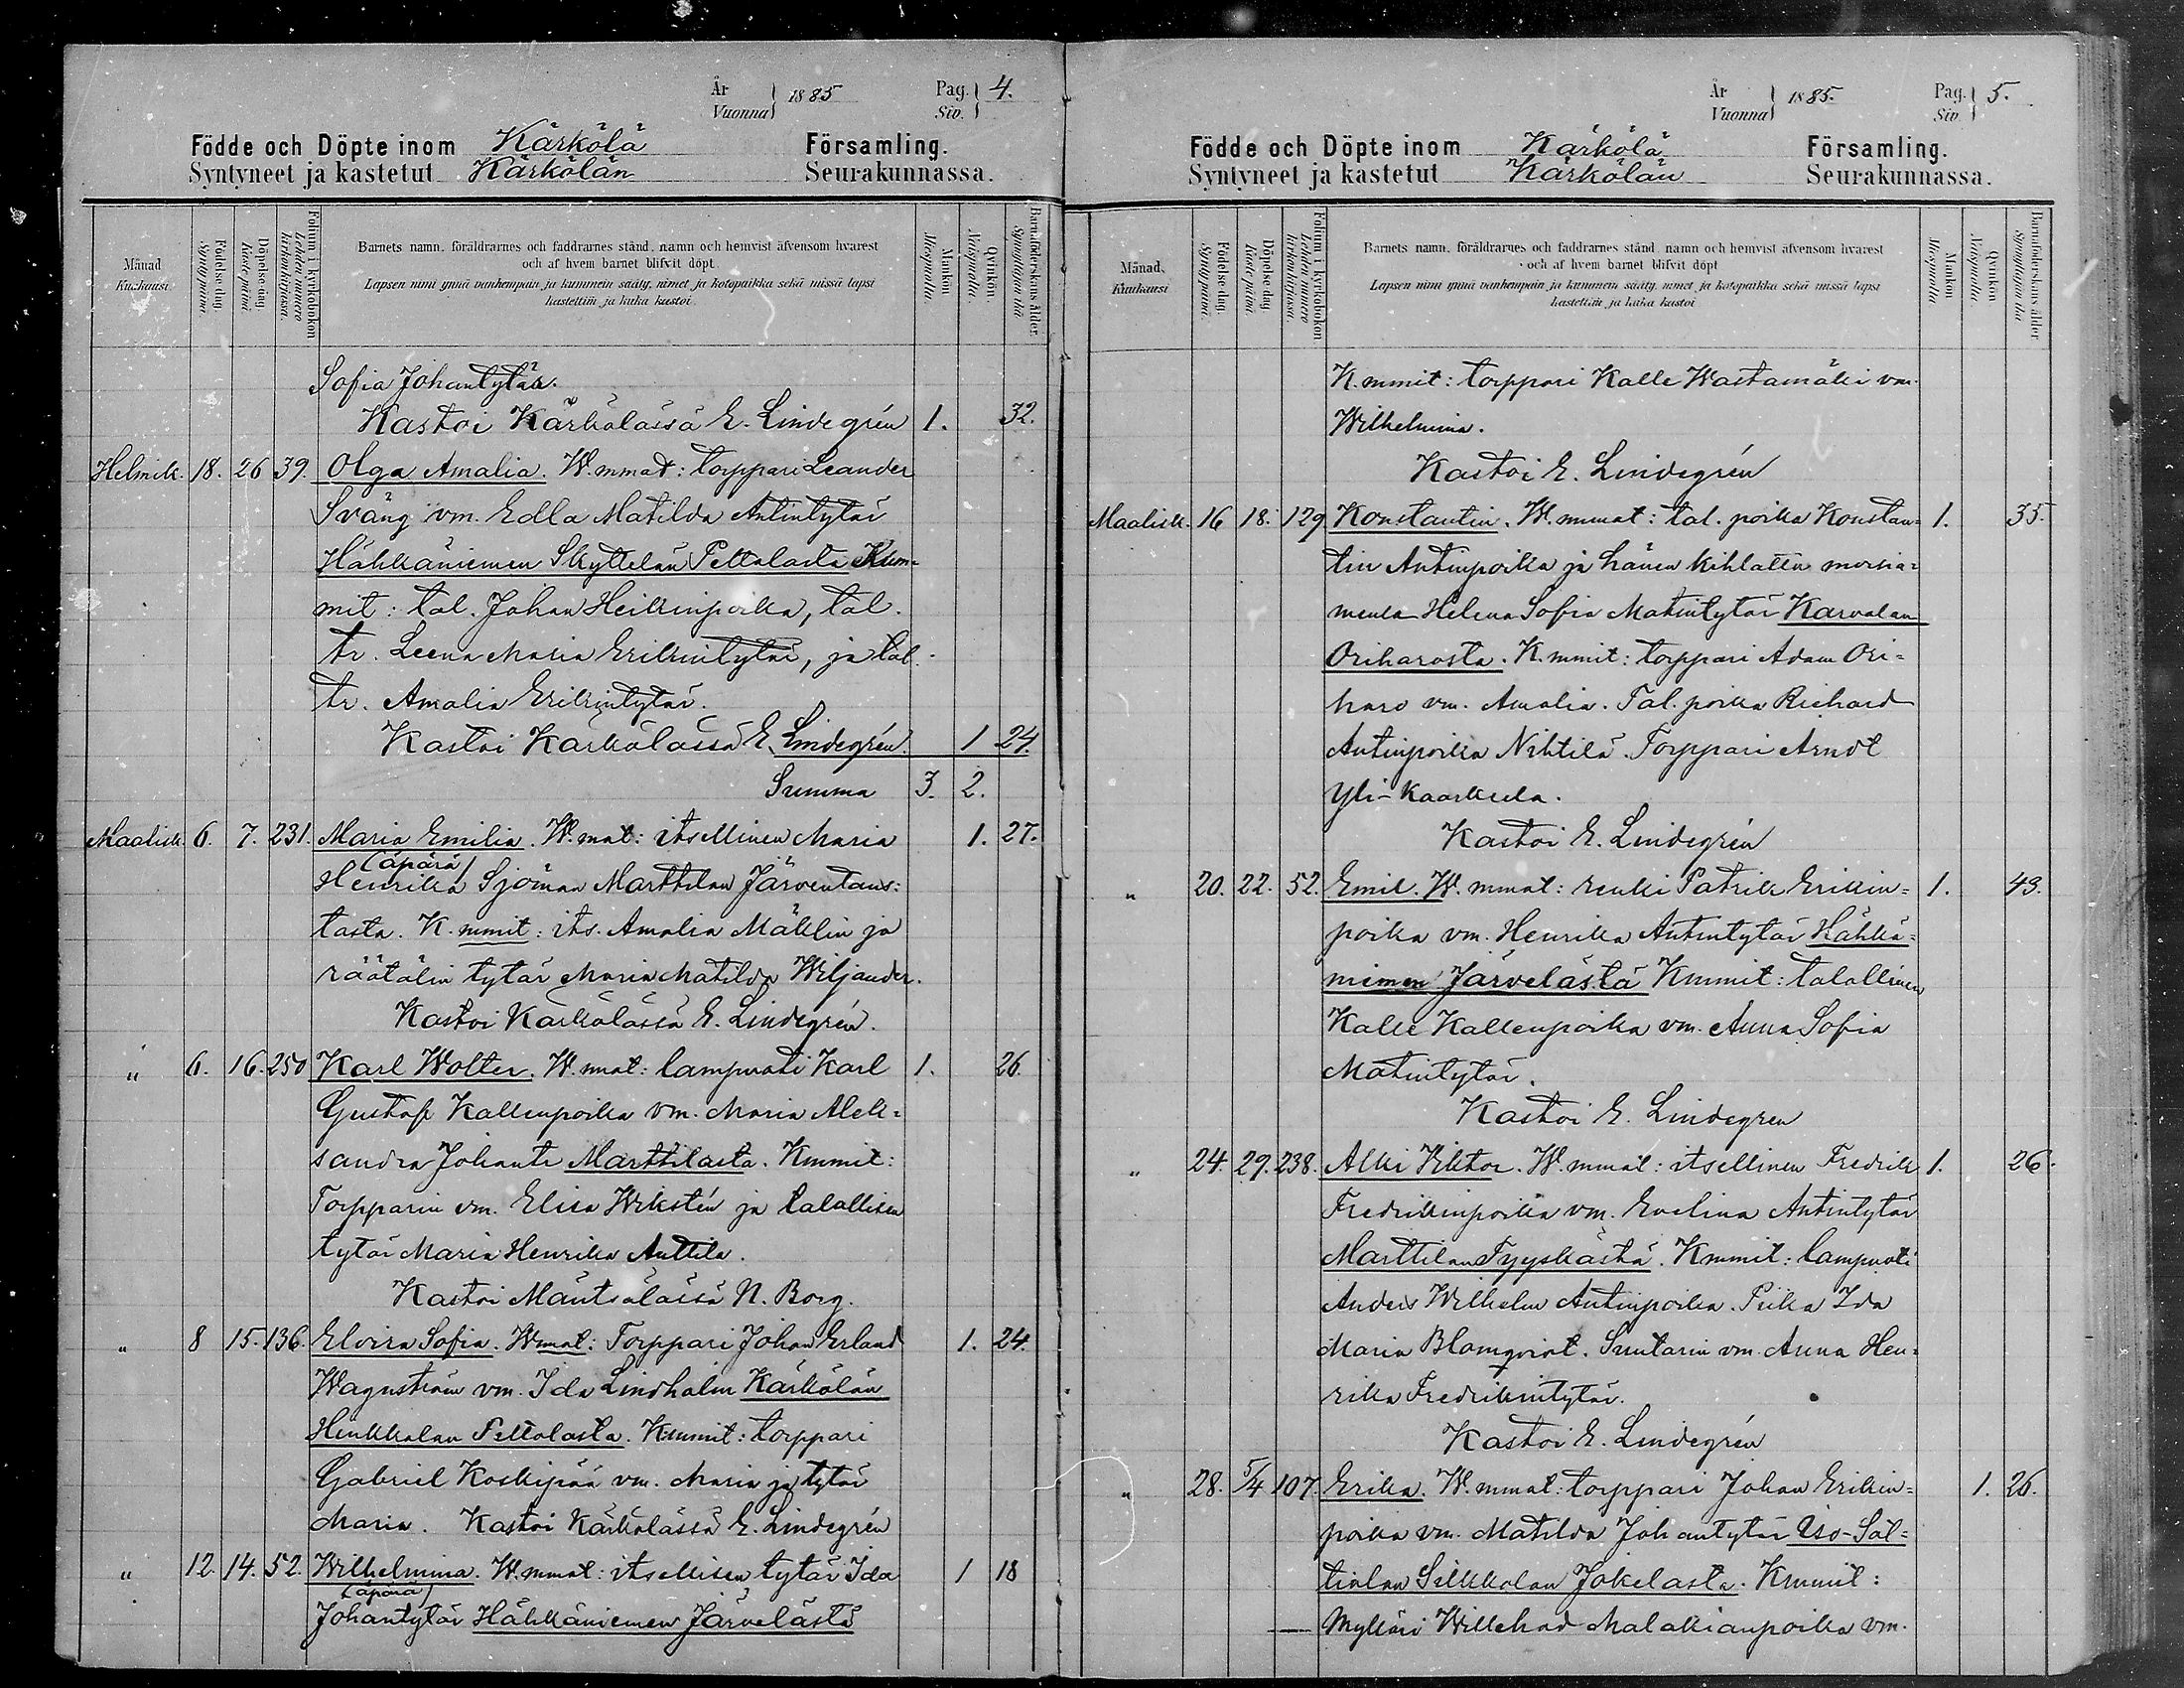 År
Vuonna } 1885
Pag.
Siv. } 4.
Födde och Döpte inom Kärkölä Församling.
Syntyneet ja kastetut Kärkölän Seurakunnassa.
Månad
Kuukausi
Födelse dag.
Syntypäivä.
Döpelse dag.
Kaste päivä
Folium i kyrkobokon
Lehden numero kirkonkirjassa.
Barnets namn, föräldrarnes och faddrarnes stånd, namn och hemvist äfvensom hvarest
och af hvem barnet blifvit döpt.
Lapsen nimi ynnä vanhempain ja kummein sääty, nimet ja kotopaikka sekä missä lapsi
kastettiin ja kuka kastoi.
Mankön
Miespuolia.
Qvinkön.
Naispuolia.
Barnaföderskans ålder
Synnyttäjän ikä
Sofia Johantytär.
Kastoi Kärkölässä E. Lindegrén 1. 32.
Helmik. 18. 26 39. Olga Amalia. W.mmat: torppari Leander
Sväng vm. Edla Matilda Antintytär
Hähkäniemen Skyttelän Peltolasta Kum=
mit: tal. Johan Heikinpoika, tal.
tr. Leena Maria Erikintytär, ja tal.
tr. Amalia Erikintytär.
Kastoi Kärkölässä E. Lindegrén. 1 24.
Summa 3. 2.
Maalisk. 6. 7. 231. Maria Emilia. W.mat: itsellinen Maria 1. 27.
(äpärä)
Henrika Sjöman Marttilan Järventaus=
tasta. K.mmit: its. Amalia Mäklin ja
räätälin tytär Maria Matilda Wiljander.
Kastoi Kärkölässä E. Lindegrén.
" 6. 16. 250 Karl Wolter. W.mat: lampuoti Karl 1. 26.
Gustaf Kallenpoika vm. Maria Alek=
sandra Johantr Marttilasta. Kmmit:
Torpparin vm. Elisa Wikstén ja talollisen
tytär Maria Henrika Anttila.
Kastoi Mäntsälässä N. Borg.
" 8 15. 136. Elvira Sofia. Wmat: Torppari Johan Erland 1. 24.
Wagnström vm. Ida Lindholm Kärkölän
Heukkolan Peltolasta. Kmmit: torppari
Gabriel Koskipää vm. Maria ja tytär
Maria. Kastoi Kärkölässä E. Lindegrén
" 12. 14. 52. Wilhelmina. W.mmat: itsellisen tytär Ida 1 18
(äpärä)
Johantytär Hähkäniemen Järvelästä
År
Vuonna } 1885.
Pag.
Siv. } 5.
Födde och Döpte inom Kärkölä Församling.
Syntyneet ja kastetut Kärkölän Seurakunnassa.
Månad.
Kuukausi
Födelse dag.
Syntypäivä.
Döpelse dag.
Kaste päivä
Folium i kyrkobokon
Lehden numero kirkonkirjassa.
Barnets namn, föräldrarnes och faddrarnes stånd, namn och hemvist äfvensom hvarest
och af hvem barnet blifvit döpt
Lapsen nimi ynnä vanhempain ja kummein sääty, nimet ja kotopaikka sekä missä lapsi
kastettiin ja kuka kastoi
Mankön
Miespuolia
Qvinkön
Naispuolia.
Barnaföderskans ålder
Synnyttäjän ikä
K.mmit: torppari Kalle Wastamäki vm.
Wilhelmina.
Kastoi E. Lindegrén
Maalisk. 16 18. 129 Konstantin. W.mmat: tal. poika Konstan= 1. 35.
tin Antinpoika ja hänen kihlattu morsia=
mensa Helena Sofia Matintytär Karvalan
Oriharosta. K.mmit: torppari Adam Ori=
haro vm. Amalia. Tal. poika Richard
Antinpoika Nihtilä. Torppari Arndt
Yli-Kaarkula.
Kastoi E. Lindegrén
" 20. 22. 52. Emil. W.mmat: renki Patrik Erikin= 1. 43.
poika vm. Henrika Antintytär Hähkä=
niemen Järvelästä Kmmit: talollinen
Kalle Kallenpoika vm. Anna Sofia
Matintytär.
Kastoi E. Lindegren
" 24. 29. 238. Alki Viktor. W.mmat: itsellinen Fredrik 1. 26.
Fredrikinpoika vm. Evelina Antintytär
Marttilan Tyyskästä. Kmmit: lampuoti
Anders Wilhelm Antinpoika. Piika Ida
Maria Blomqvist. Suutarin vm. Anna Hen=
rika Fredrikintytär.
Kastoi E. Lindegrén
" 28. 5/4 107. Erika. W.mmat: torppari Johan Erikin= 1. 26.
poika vm. Matilda Johantytär Uso-Säl=
tialan Silkkolan Jokelasta. Kmmit:
Mylläri Willehad Malakianpoika vm.